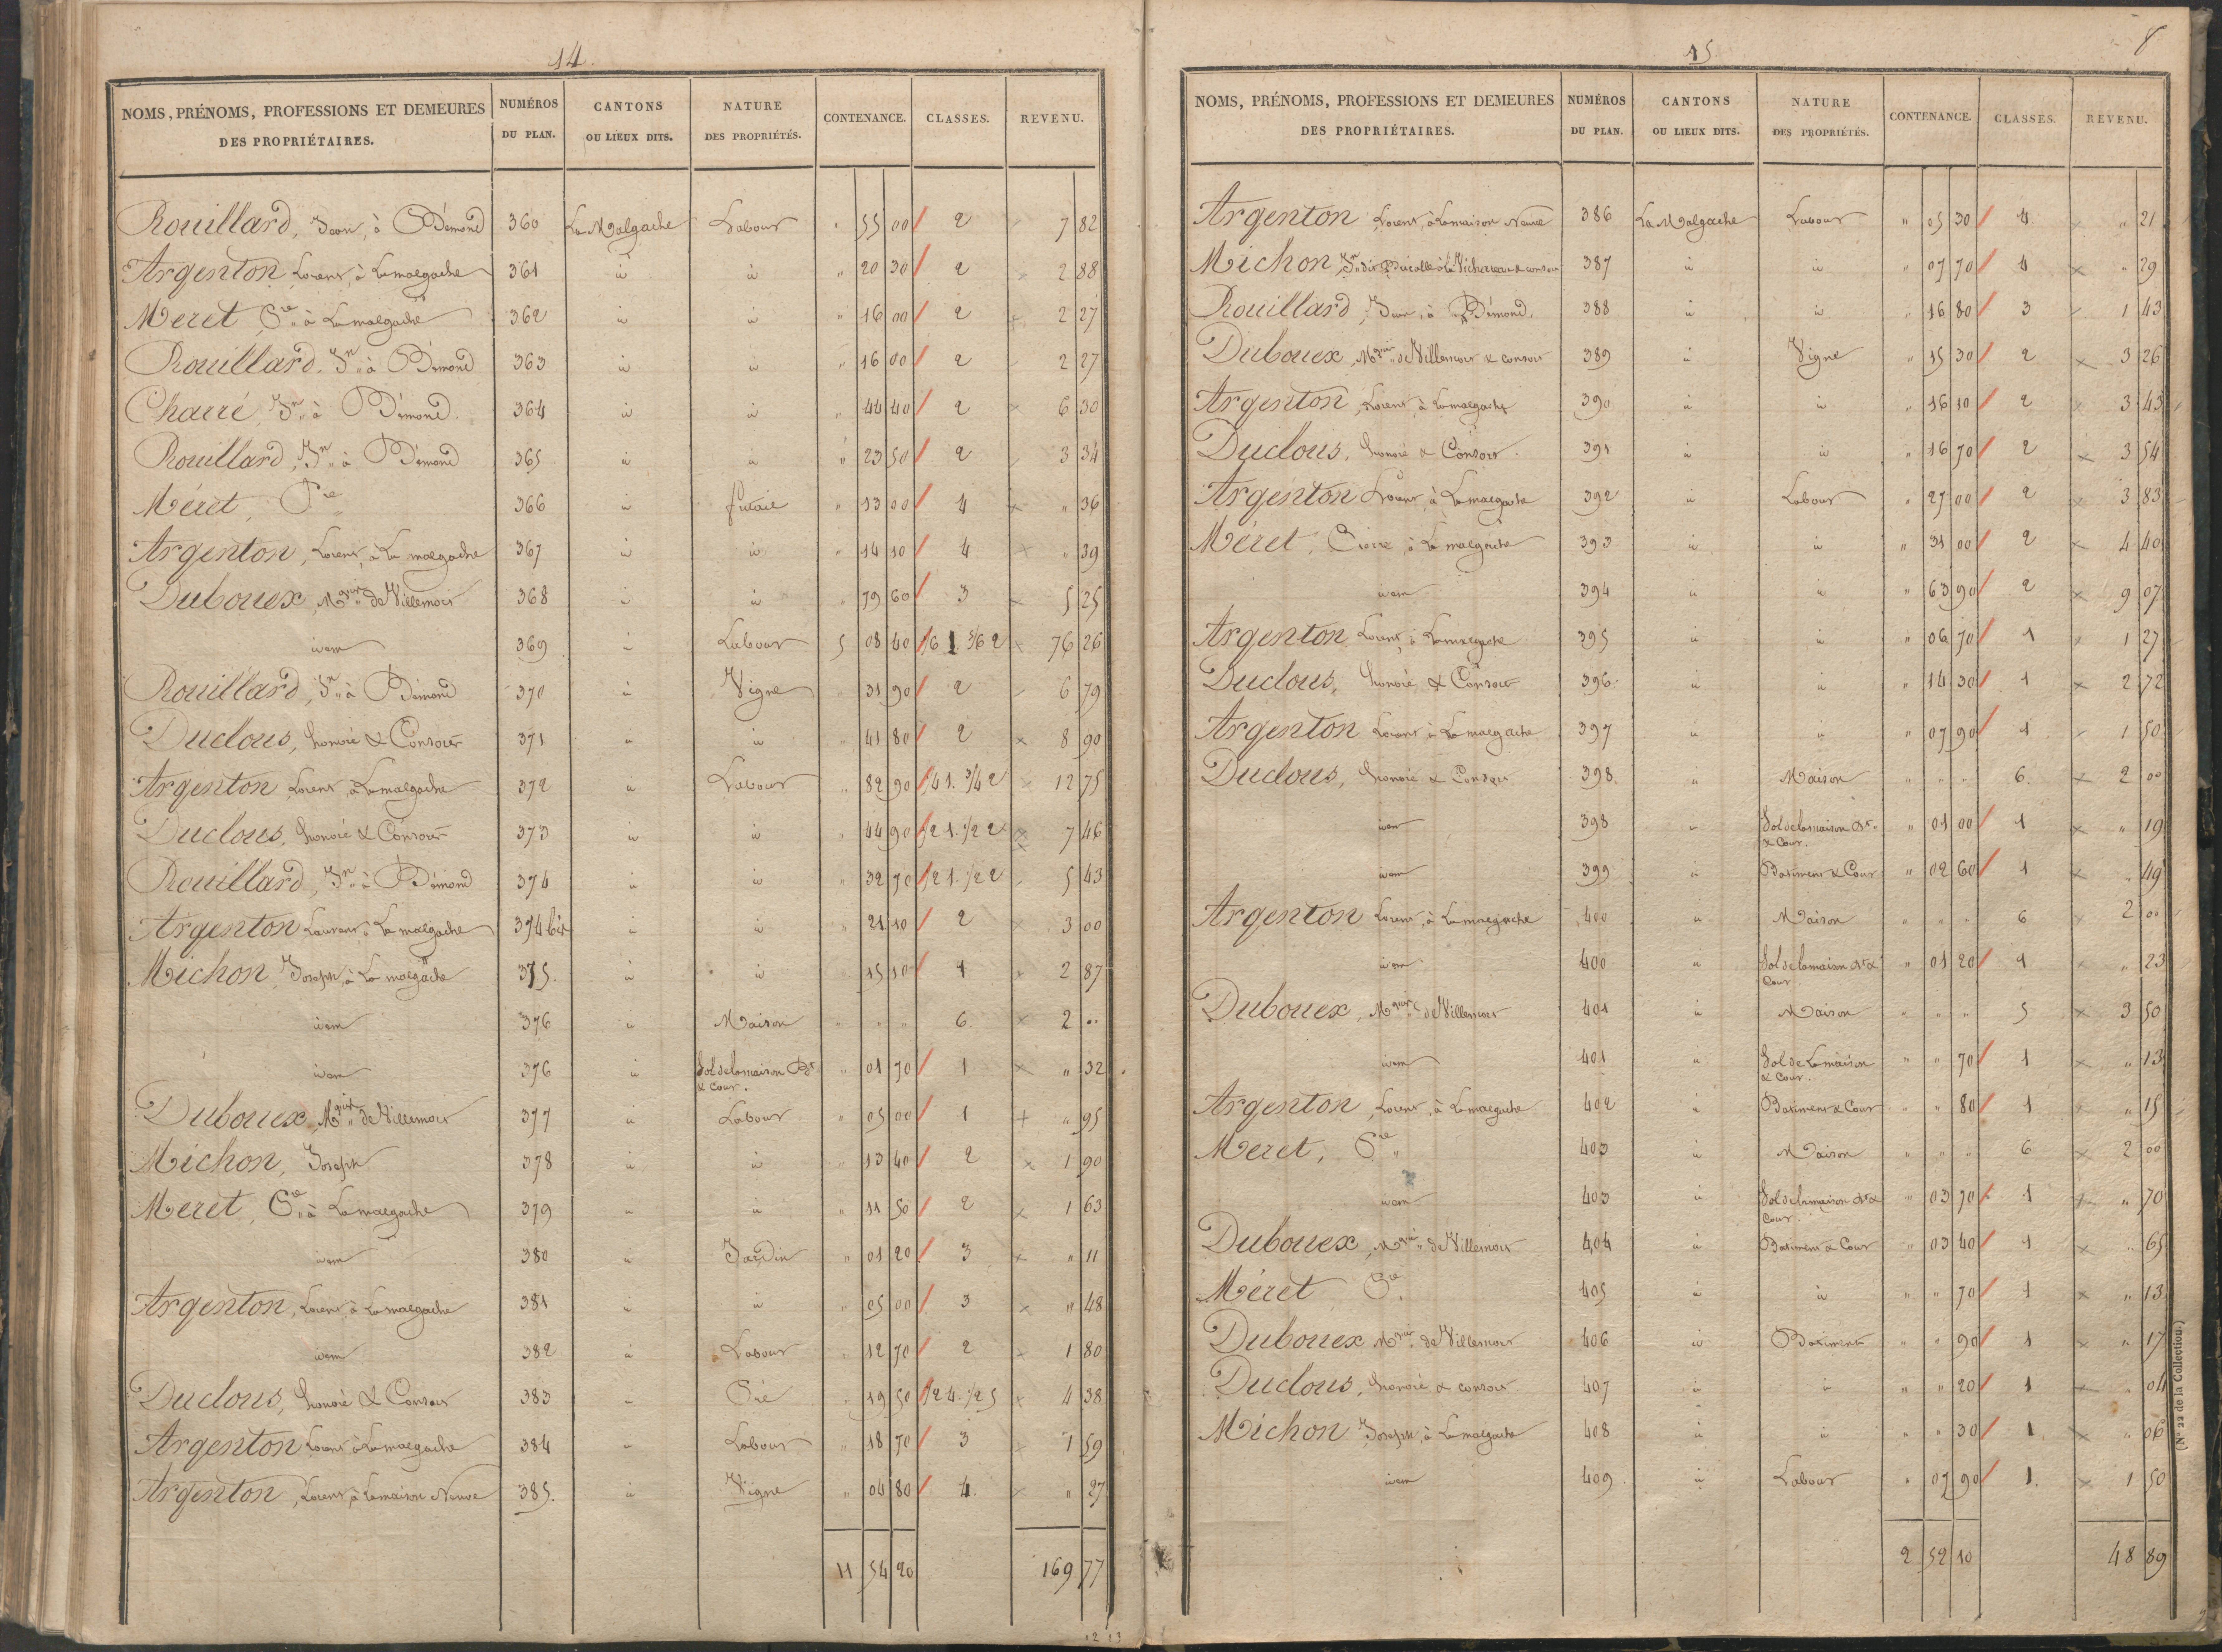 14.
NOMS, PRÉNOMS, PROFESSIONS ET DEMEURES DES PROPRIÉTAIRES. NUMÉROS DU PLAN. CANTONS OU LIEUX DITS. NATURE DES PROPRIÉTÉS. CONTENANCE. CLASSES. REVENU.
Rouillard, Jean, à Bémond 360 La Malgache Labour " 55 00 / 2 7 82
Argenton Lorent, à Lamalgache 361 id id " 20 30 / 2 × 2 88
Meret Pre " à Lamalgache 362 id id " 16 00 / 2 × 2 27
Rouillard, Jn " à Bémond 363 id id " 16 00 / 2 2 27
Charré, Jn " à Bémond. 364 id id " 44 40 / 2 × 6 30
Rouillard, Jn " à Bémond 365 id id " 23 50 / 2 3 34
Méret, Pre " 366 id futaie " 13 00 / 4 × " 36
Argenton, Lorent, à La malgache 367 id id " 14 10 / 4 × " 39
Dubouex, Mquis " de Villemois 368 id id " 79 60 / 3 × 5 25
idem 369 id Labour 5 08 40 / 1/6 1. 5/6 2 × 76 26
Rouillard, Jn " à Bémond 370 id Vigne " 31 90 / 2 6 79
Duclous, honoré & Consors 371 id id " 41 80 / 2 × 8 90
Argenton Lorent, à Lamalgache 372 id Labour " 82 90 / 1/4 1. 3/4 2 × 12 75
Duclous, honoré & Consors 373 id id " 44 90 / 1/2 1. 1/2 2 × 7 46
Rouillard, Jn " à Bémond 374 id id " 32 70 / 1/2 1. 1/2 2 5 43
Argenton Laurent, à La malgache 374 bis id id " 21 10 / 2 × 3 00
Michon, Joseph, à La malgache 375. id id " 15 10 / 1 × 2 87
idem 376 id Maison " " " 6. × 2 "
idem 376 id Sol de la maison Bt & Cour. " 01 70 / 1 × " 32
Dubouex, Mquis " de Villemois 377 id Labour " 05 00 / 1 + " 95
Michon, Joseph 378 id id " 13 40 / 2 × 1 90
Meret, Pre " à Lamalgache 379 id id " 11 50 / 2 × 1 63
idem 380 id Jardin " 01 20 / 3 × " 11
Argenton, Lorent, à Lamalgache 381 id id " 05 00 / 3 × " 48
idem 382 id Labour " 12 70 / 2 × 1 80
Duclous, honoré & Consors 383 id Pré " 19 50 / 1/2 4. 1/2 5 × 4 38
Argenton Lorent à Lamalgache 384 id Labour " 18 70 / 3 × 1 59
Argenton, Lorent, à Lamaison Neuve 385. id Vigne " 04 80 / 4. × " 27
11 54 20 169 77
12 13
15 8
NOMS, PRÉNOMS, PROFESSIONS ET DEMEURES DES PROPRIÉTAIRES. NUMÉROS DU PLAN. CANTONS OU LIEUX DITS. NATURE DES PROPRIÉTÉS. CONTENANCE. CLASSES. REVENU.
Argenton Lorent, à Lamaison Neuve 386 La Malgache Labour " 05 30 / 4. × " 21
Michon, Jn " dit à la & consors 387 id id " 07 70 / 4 × " 29
Rouillard, Jean, à Bémond. 388 id id " 16 80 / 3 1 43
Dubouex, Mquis " de Villemois & consors 389 id Vigne " 15 30 / 2 × 3 26
Argenton, Lorent, à Lamalgache 390 id id " 16 10 / 2 × 3 43
Duclous, honoré & Consors. 391 id id " 16 70 / 2 × 3 54
Argenton Lorent, à Lamalgache 392 id Labour " 27 00 / 2 × 3 83
Méret, Pierre, à La malgache 393 id id " 31 00 / 2 × 4 40
idem 394 id id " 63 90 / 2 × 9 07
Argenton Lorent, à Lamalgache 395 id id " 06 70 / 1 × 1 27
Duclous, honoré, & Consors 396. id id " 14 30 / 1 × 2 72
Argenton Lorent à Lamalgache 397 id id " 07 90 / 1 1 50
Duclous, honoré & Consors 398. id Maison " " " 6. × 2 00
idem 398 id Sol de la maison Bt " & Cour. " 01 00 / 1 × " 19
idem 399 id Batiment & Cour " 02 60 / 1 × " 49
Argenton Lorent, à Lamalgache 400 id Maison " " " 6 × 2 00
idem 400 id Sol de la maison Bt & Cour. " 01 20 / 1 × " 23
Dubouex, Mquis " de Villemois 401 id Maison " " " 5 × 3 50
idem 401 id Sol de Lamaison & Cour. " " 70 / 1 × " 13
Argenton, Lorent, à Lamalgache 402 id Batiment & Cour " " 80 / 1 × " 15
Meret, Pre " 403 id Maison " " " 6 × 2 00
idem 403 id Sol de la maison Bt & Cour. " 03 70 / 1 × " 70
Dubouex, Mquis " de Villemois 404 id Batiment & Cour " 03 40 / 1 × " 65
Méret Pre 405 id id " " 70 / 1 × " 13
Dubouex Mquis de Villemois 406 id Batiment " " 90 / 1 × " 17
Duclous, honoré & consors 407 id id " " 20 / 1 × " 04
Michon Joseph, à Lamalgache 408 id id " " 30 / 1. × " 06
idem 409. id Labour " 07 90 / 1. × 1 50
2 52 10 48 89
(N° 22 de la Collection.)